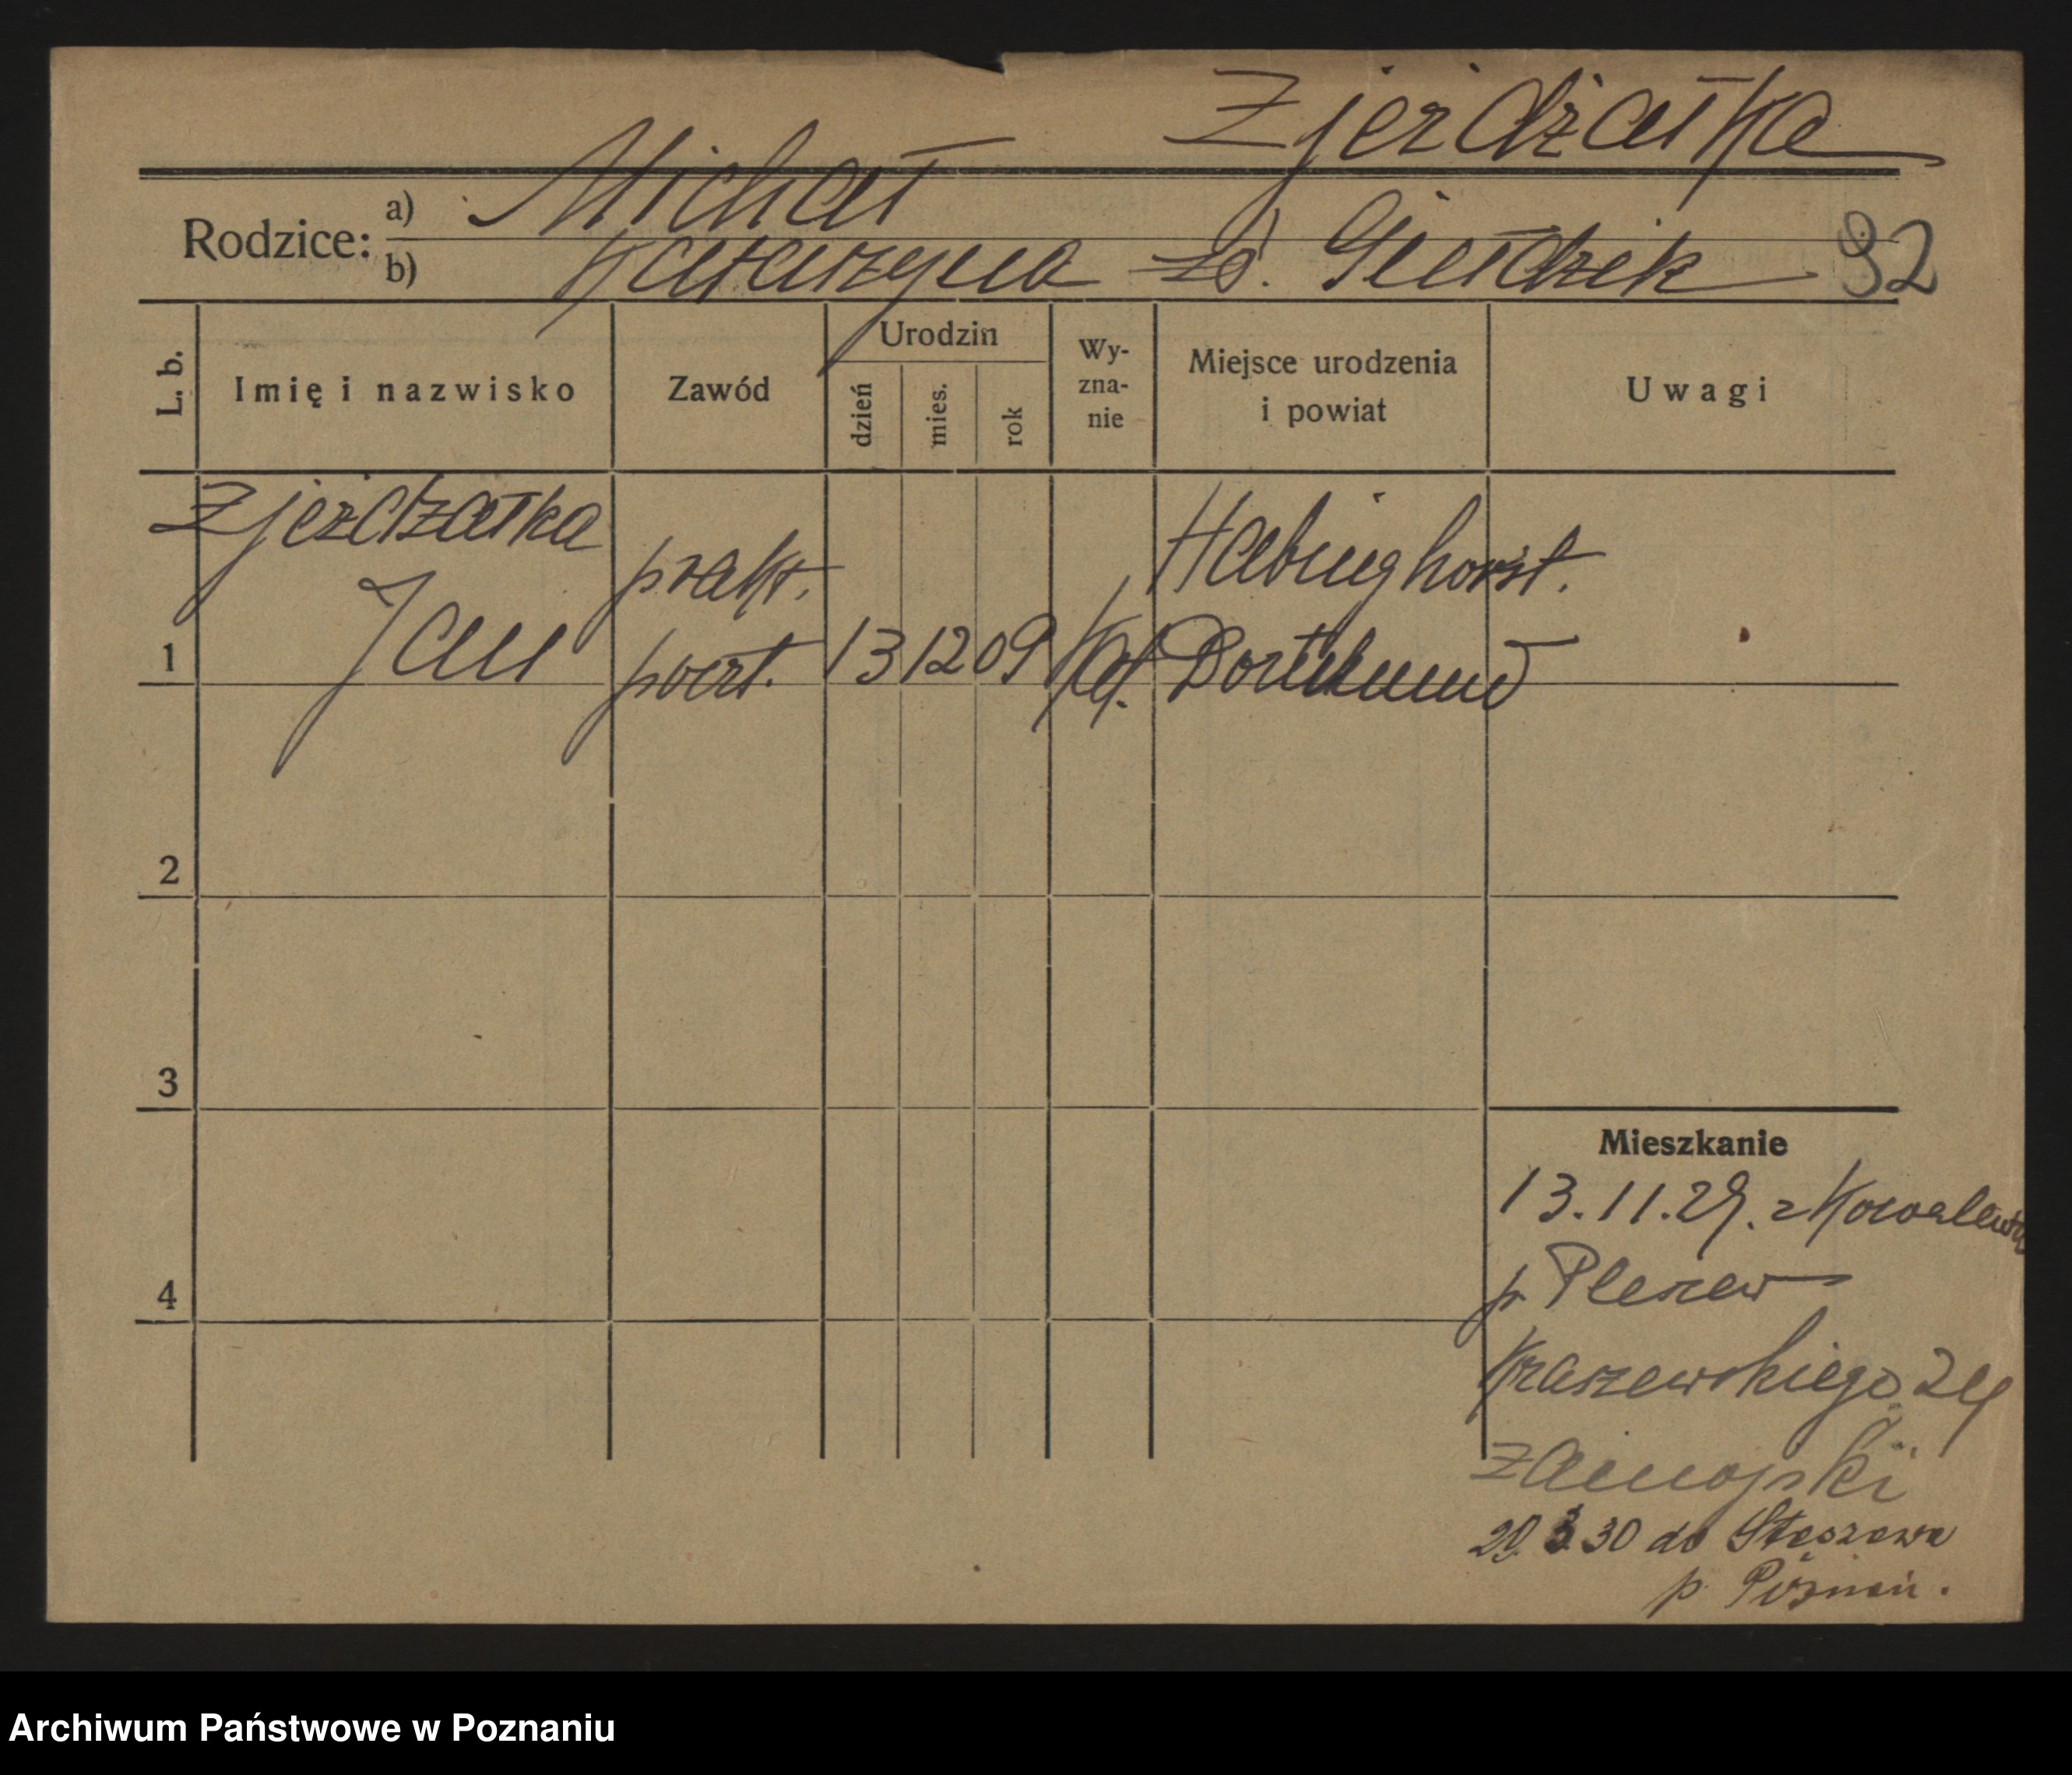 Zjeżdżałka
Rodzice: a) Michał
b) Katarzyna zd. Giełdzik 92
L. b. Imię i nazwisko Zawód Urodzin dzień mies. rok Wy-zna-nie Miejsce urodzenia i powiat Uwagi
Zjeżdżałka prakt. Habinghorst.
1 Jan poczt. 13 12 09 Kat. Dortmund
2
3
Mieszkanie
13.11.29. z Kowalewa
p. Pleszew
4
Kraszewskiego 24
20. 3. 30 do Stęszewa
p. Poznań.
Archiwum Państwowe w Poznaniu